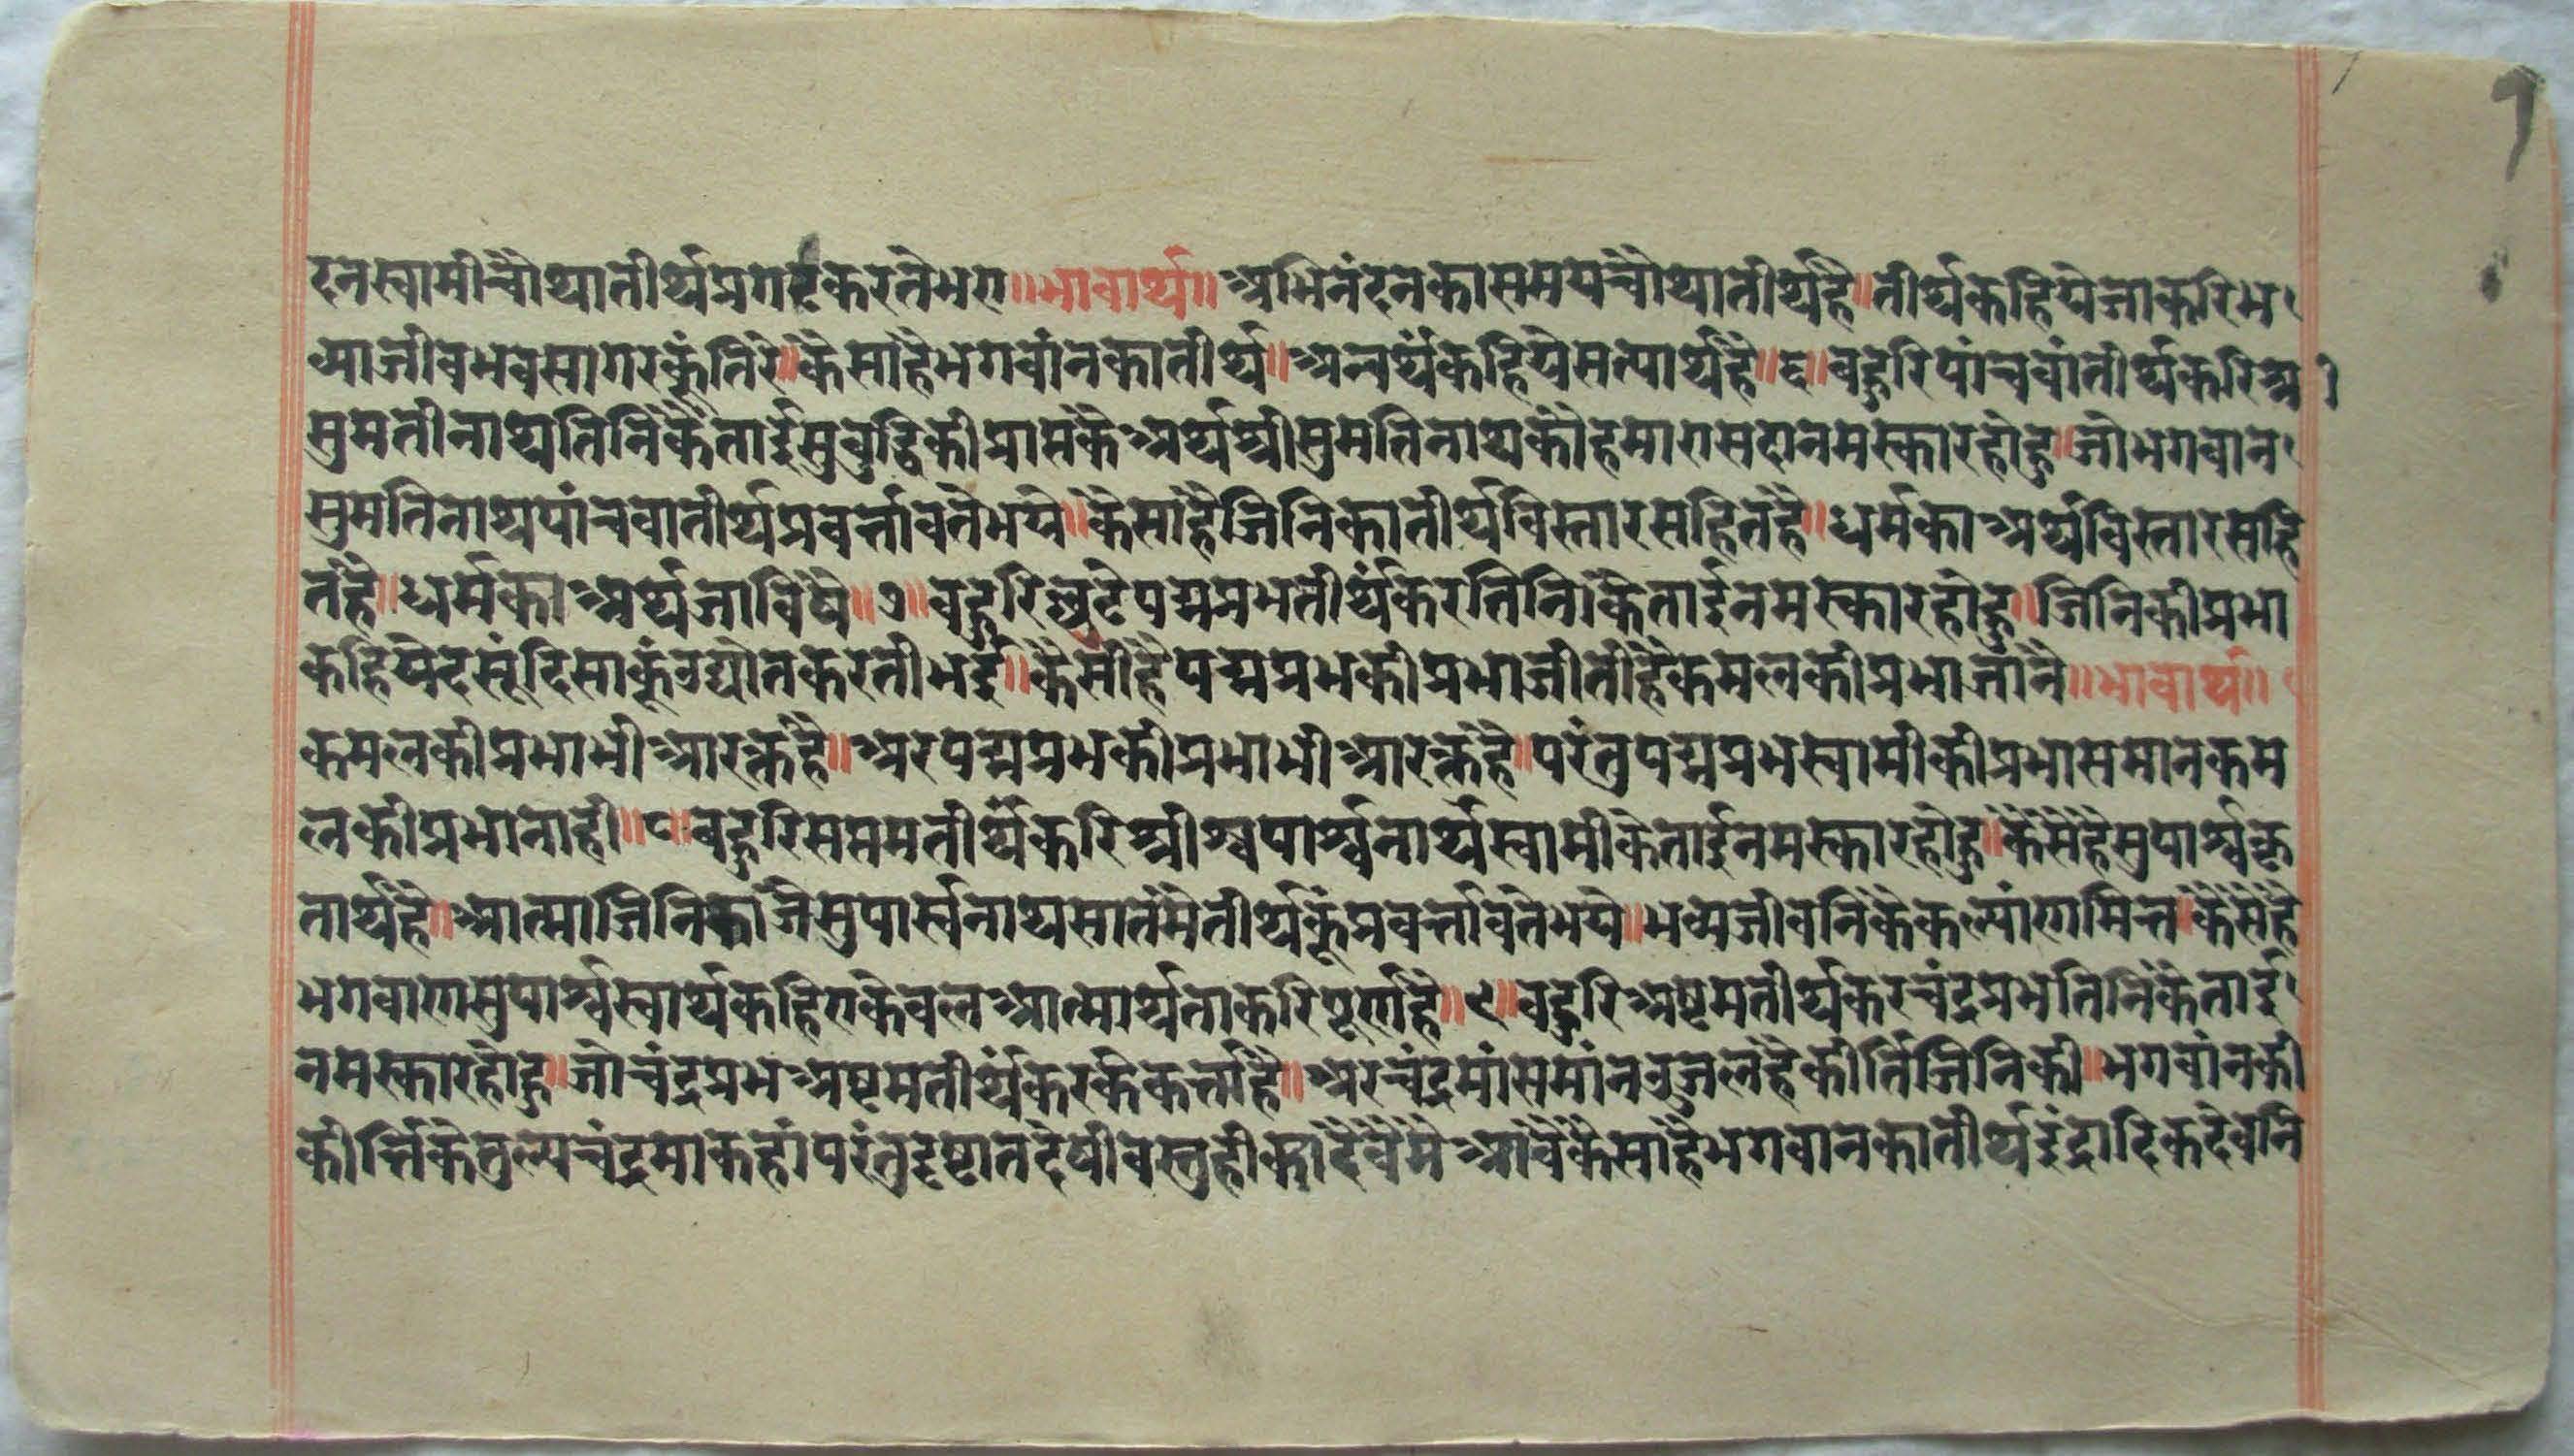 दनस्वामीचौथातीर्थप्रगटकरतेभए॥भावार्थ॥अभिनंदनकासमयचौथातीर्थहै॥तीर्थकहियेजाकरिभ
व्याजीवभवसागरकूंतिरे॥कैसाहैभगवांनकातीर्थ॥अन्वर्थकहियेसत्यार्थहै॥६॥बहुरिपांचवांतीर्थकरिश्र
सुमतीनाथतिनिकैतांईसुबुद्धिकीप्राप्तकैअर्थश्रीसुमतिनाथकौहमारासदानमस्कारहोहु॥जोभगवान
सुमतिनाथपांचवातीर्थप्रवर्त्तावतेभये॥कैसाहैजिनिकातीर्थविस्तारसहितहै॥धर्मकाअर्थविस्तारसहि
तहै॥धर्मकाअर्थजाविषै॥७॥बहुरिछटेपद्मप्रभतीर्थंकरतिनिकैतांईनमस्कारहोहु॥जिनिकीप्रभा
कहियेदसूंदिसाकूंउद्योतकरतीभई॥कैसीहैपद्मप्रभकीप्रभाजीतीहैकमलकीप्रभाजानै॥भावार्थ॥
कमलकीप्रभाभीआरक्तहै॥अरपद्मप्रभकीप्रभाभीआरक्तहै॥परंतुपद्मप्रभस्वामीकीप्रभासमानकम
लकीप्रभानाही॥८॥बहुरिसप्तमतीर्थंकरिश्रीश्वपार्श्वनार्थस्वामीकेतांईनमस्कारहोहु॥कैसेहैसुपार्श्वकृ
तार्थहै॥आत्माजिनिकाजैसुपार्स्वनाथसातमैतीर्थकूंप्रवर्त्तावतेभये॥भव्यजीवनिकेकल्यांणमित्त॥कैसेहै
भगवाणसुपार्श्वस्वार्थकहिएकेवलआत्मार्थताकरिपूर्णहै॥९॥बहुरिअष्टमतीर्थकरचंद्रप्रभतिनिकैतांई
नमस्कारहोहु॥जोचंद्रप्रभअष्टमतीर्थंकरकेकर्त्ताहै॥अरचंद्रमांसमांनउजलहैकीर्तिजिनिकी॥भगवांनकी
कीर्त्तिकेतुल्यचंद्रमाकहांपरंतुदृष्टातदेषीवस्तुहीकादैवैमैआवैकैसाहैभगवानकातीर्थइंद्रादिकदेवनि